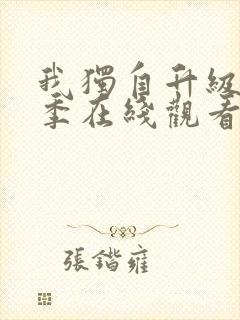 我獨自升級
季在綫觀看
張鍇雍